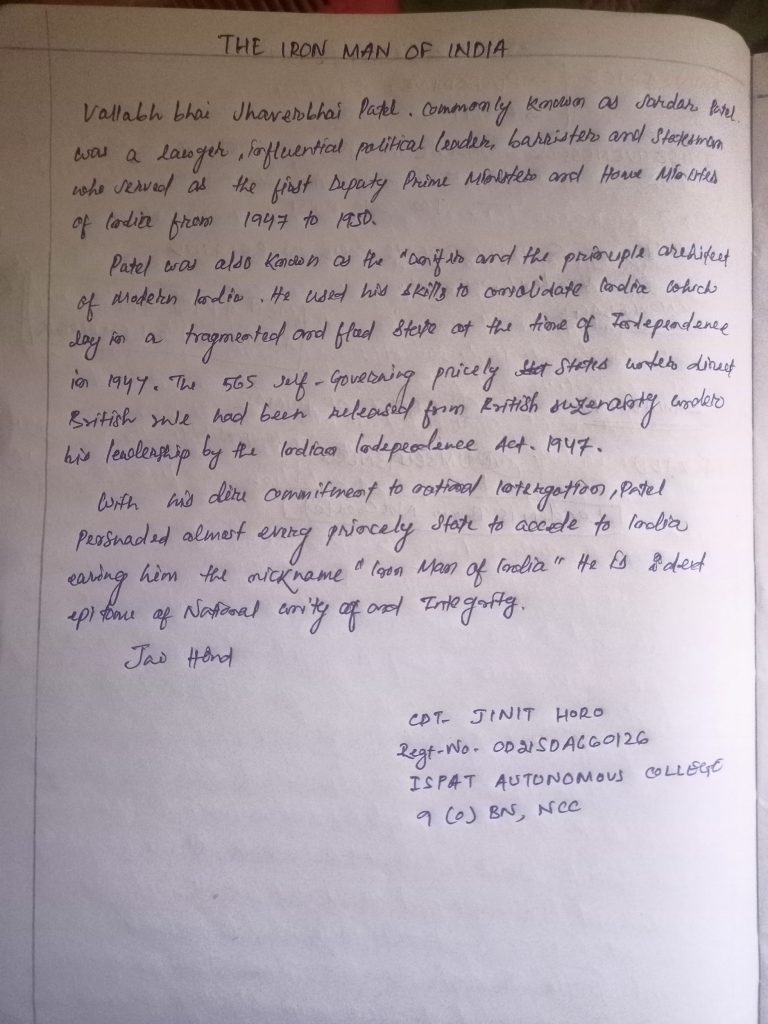 THE IRON MAN OF INDIA
Vallabh bhai Jhaverbhai Patel. Commonly known as Sardar Patel
was a lawyer, influential political leader, barrister and Statesman
who served as the first Deputy Prime Minister and Home Minister
of India from 1947 to 1950.
Patel was also known as the "unifier and the principle architect
of Modern India. He used his skills to consolidate India which
lay in a fragmented and flad State at the time of Independence
in 1947. The 565 self-Governing pricely States under direct
British rule had been released from British suzerainty under
his leadership by the Indian Independence Act. 1947.
With his dire commitment to national Intergation, Patel
Persuaded almost every princely State to accede to India
earing him the nickname "Iron Man of India" He is
epitome of National unity and Integrity.
Jai Hind
CDT- JINIT HORO
Regt-No- OD21SDA660126
ISPAT AUTONOMOUS COLLEGE
9 (O) BN, NCC